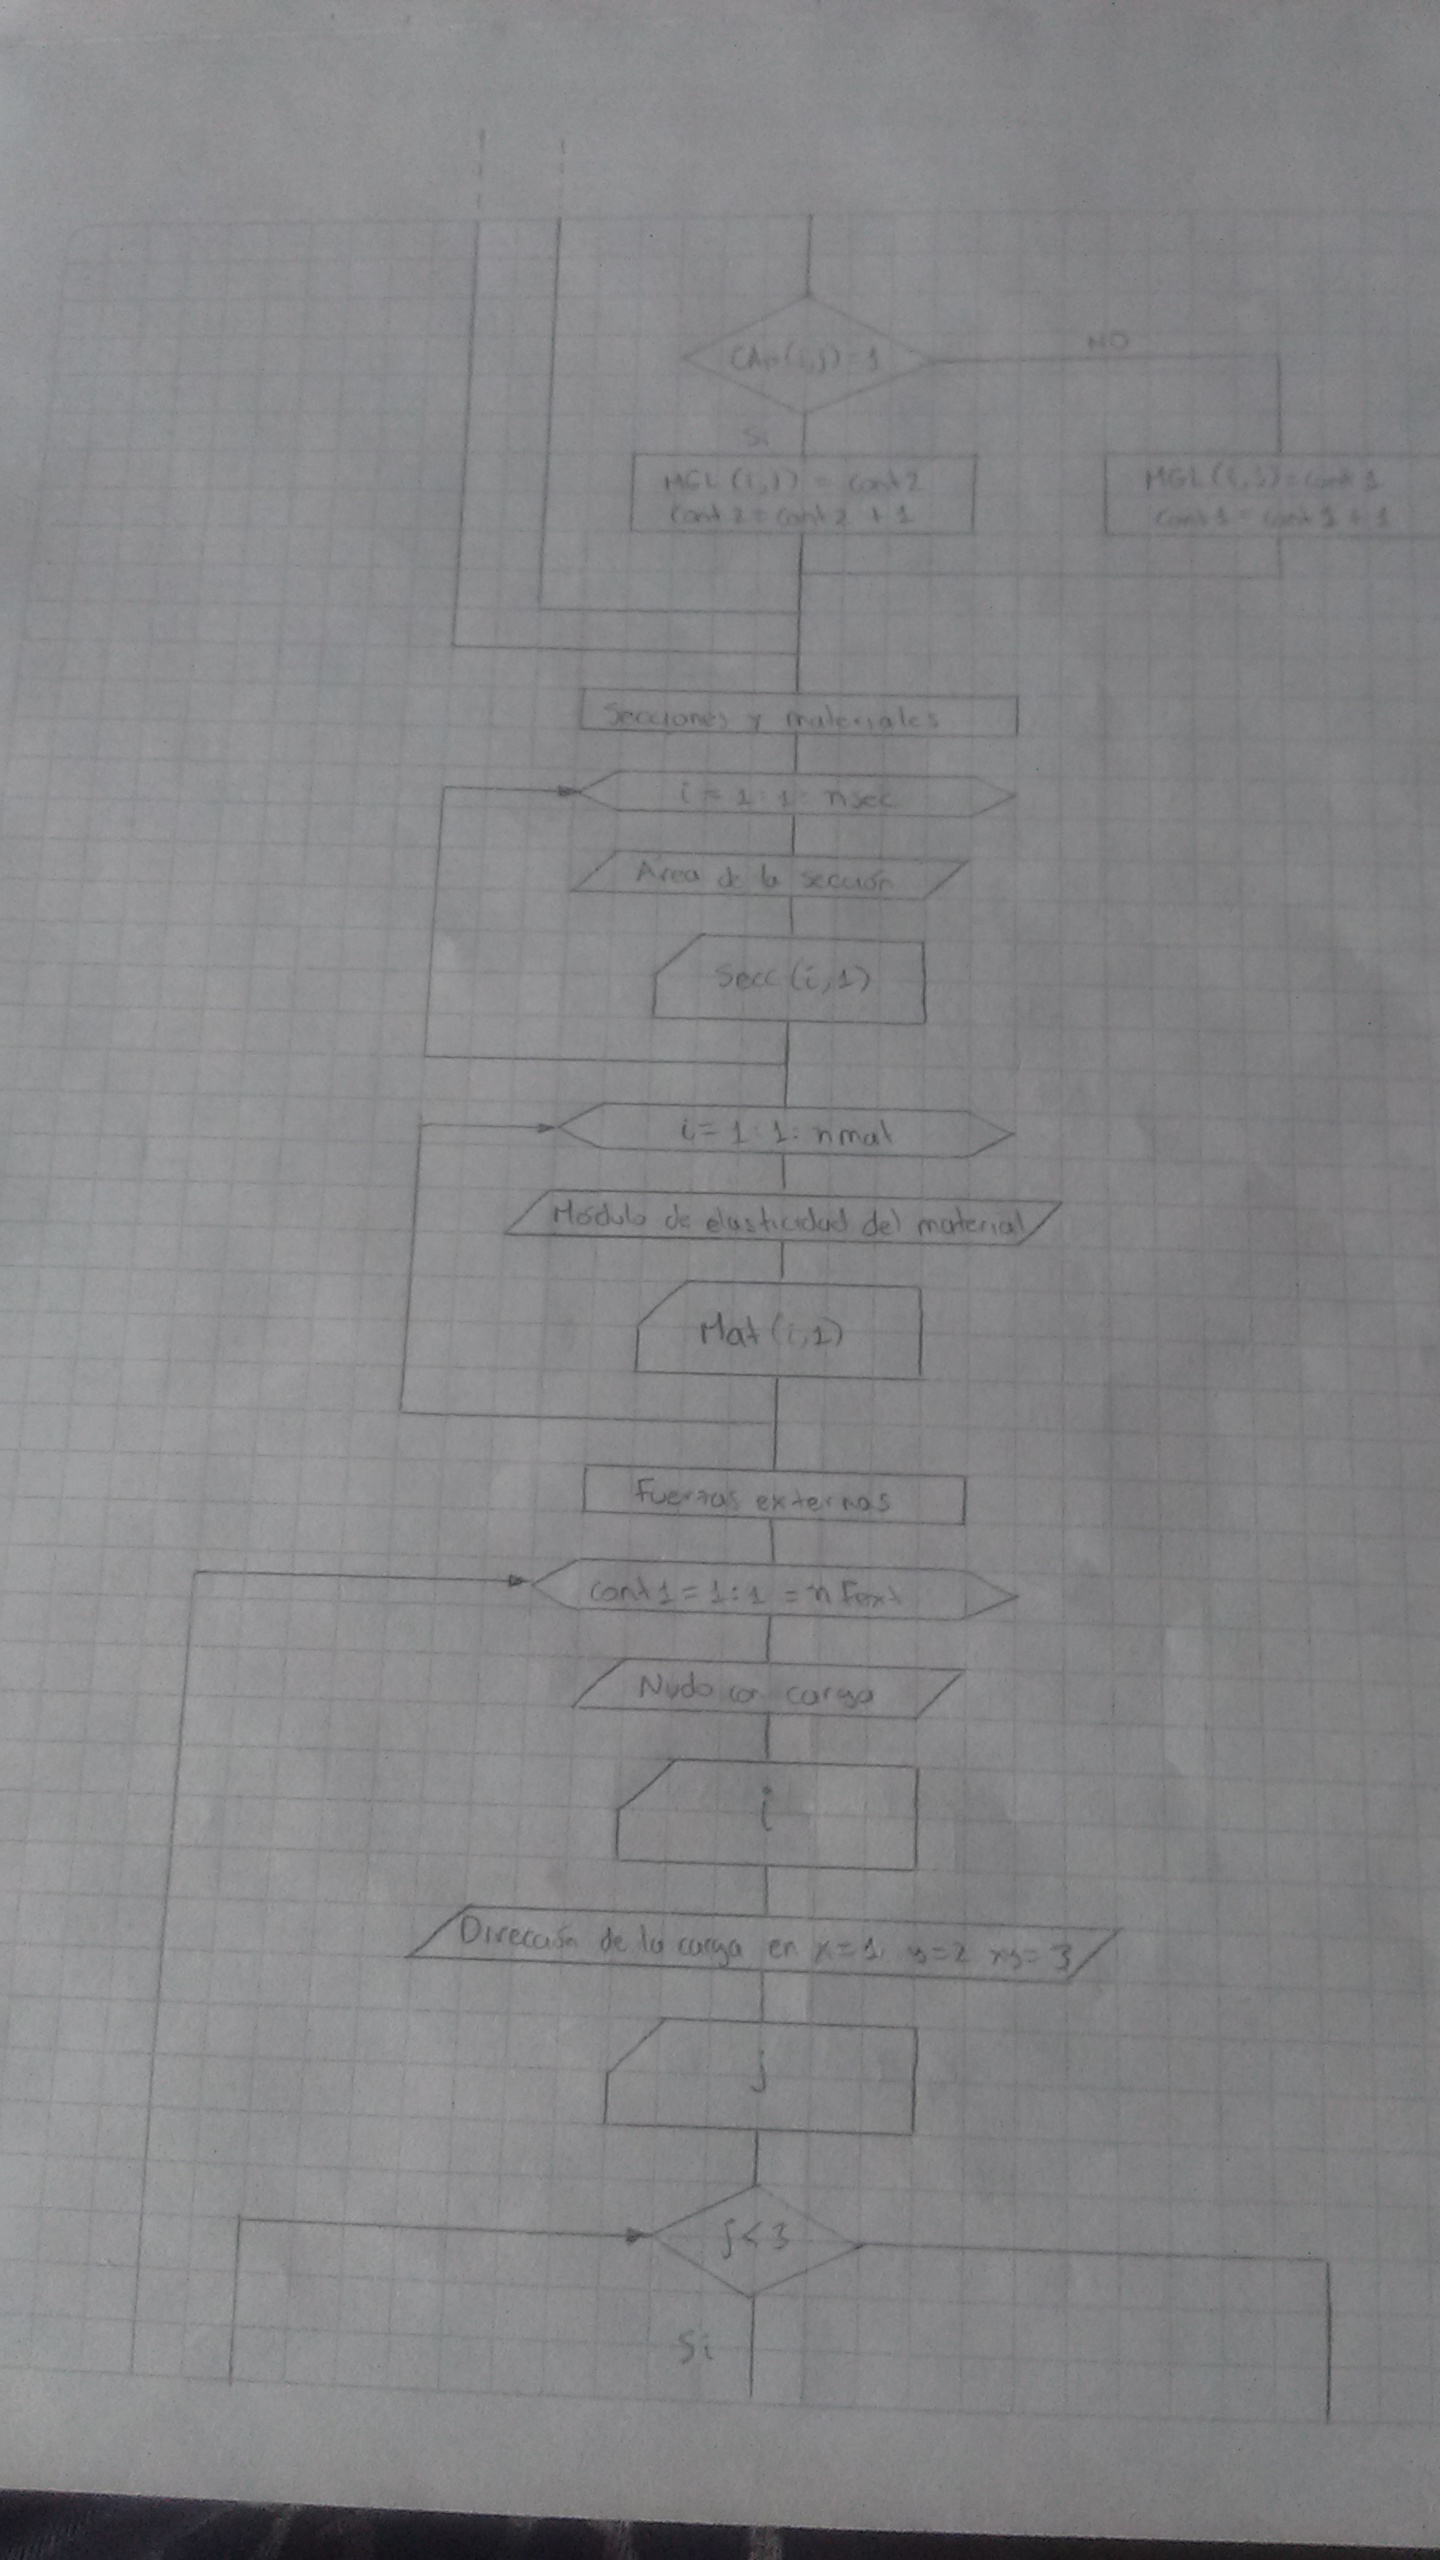 CAp(i,j)=1
NO
Si
MGL(i,j) = cont2
cont2=cont2 +1
MGL(i,j)=cont1
cont1=cont1+1
Secciones y materiales
i = 1:1: nsec
Area de la sección
Secc(i,1)
i= 1:1: nmat
Módulo de elasticidad del material
Mat(i,1)
Fuerzas externas
cont1=1:1 =nFext
Nudo con carga
i
Dirección de la carga en x=1 y=2 xy=3
j
j<3
Si